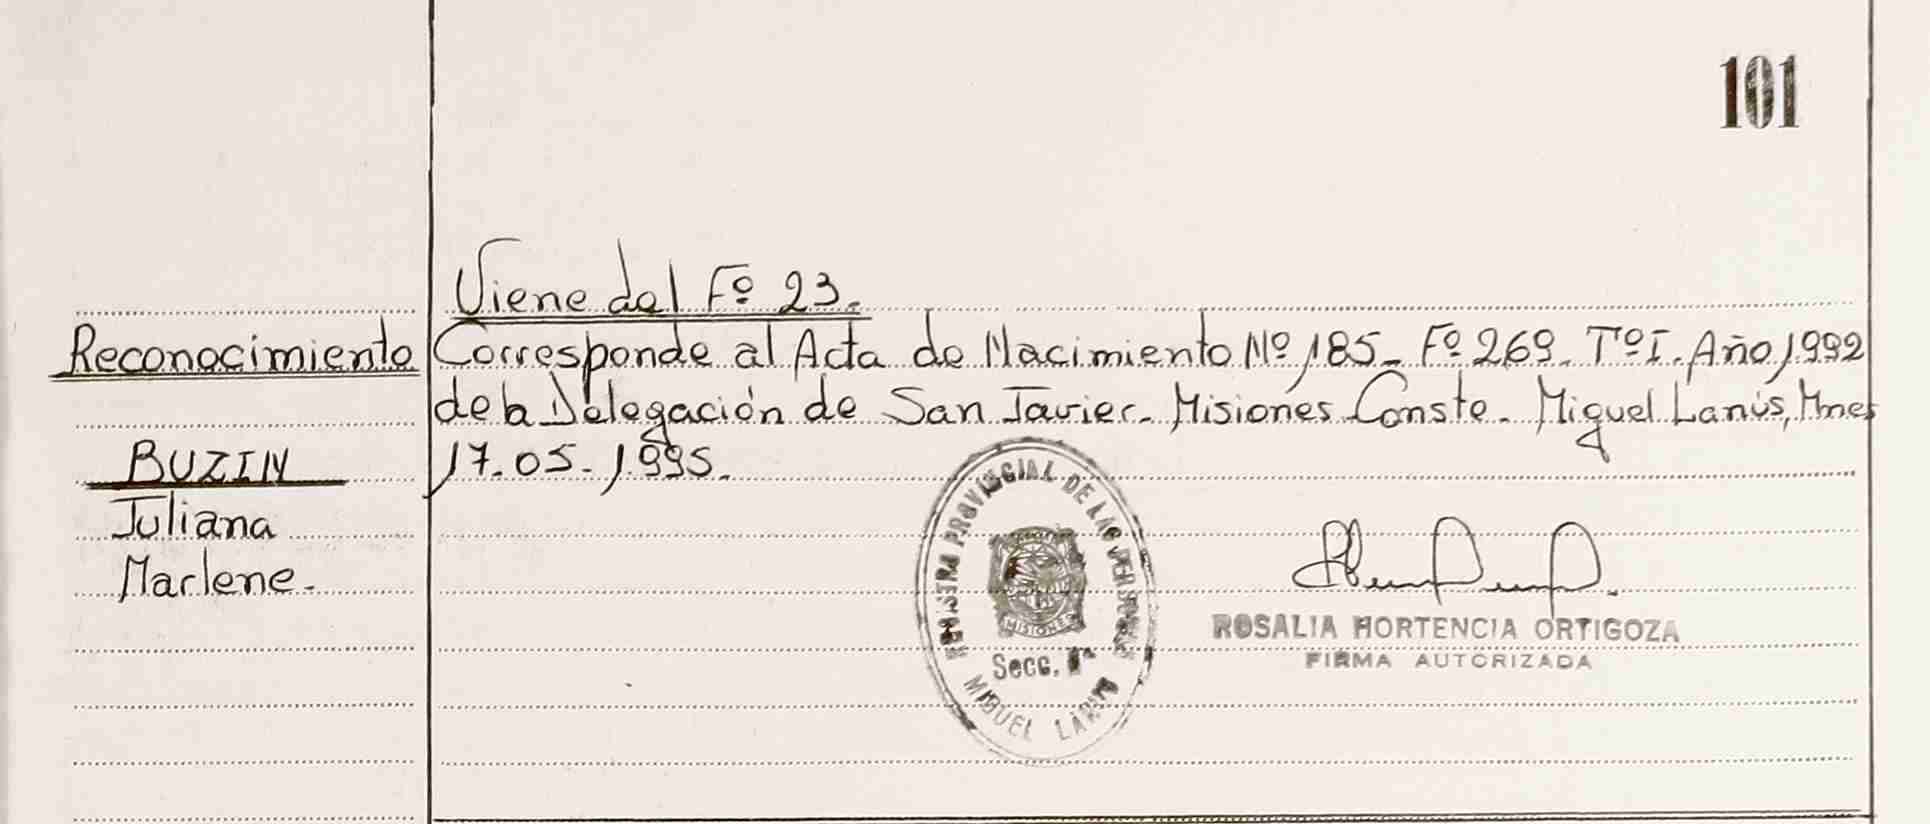 101
Viene del Fº 23.
Reconocimiento
Corresponde al Acta de Nacimiento Nº 185_ Fº 269_ Tº I. Año 1.992
de la Delegación de San Javier_ Misiones Conste_ Miguel Lanús, Mnes
17.05.1.995.
BUZIN
Juliana
Marlene.
REGISTRO PROVINCIAL DE LAS PERSONAS
MISIONES
Secc. 1ª
MIGUEL LANUS
ROSALIA HORTENCIA ORTIGOZA
FIRMA AUTORIZADA